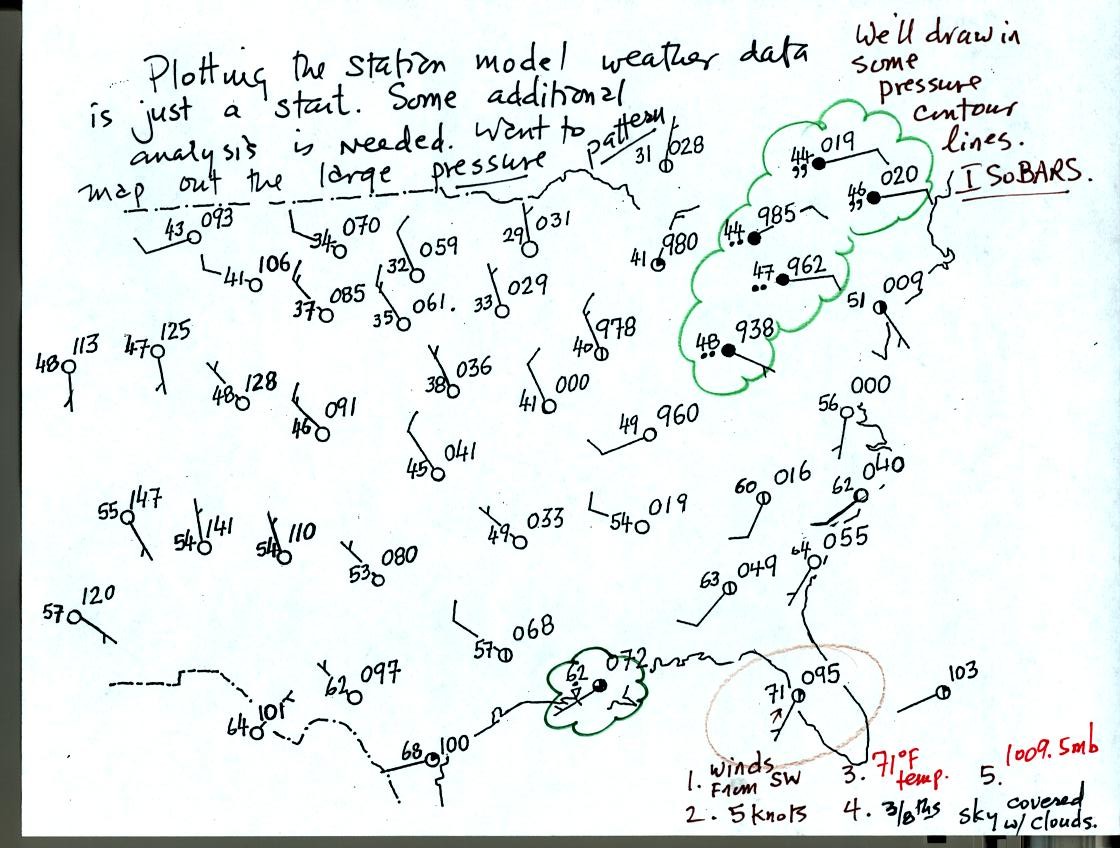 Plotting the station model weather data
is just a start. Some additional
analysis is needed. Want to
map out the large pressure pattern
We'll draw in
some
pressure
contour
lines.
ISOBARS.
31 028
44 019
,,
46 020
,,
43 093
34 070
32 059
29 031
41 980
44 985
47 962
41 106
37 085
35 061.
33 029
51 009
48 113
47 125
48 128
46 091
38 036
40 978
41 000
48 938
56 000
49 960
45 041
62 040
55 147
54 141
54 110
53 080
49 033
54 019
60 016
64 055
57 120
63 049
57 068
62 097
62 072
71 095
103
64 101
68 100
1. Winds From SW
2. 5 knots
3. 71°F temp.
4. 3/8ths sky covered w/ clouds.
5. 1009.5mb